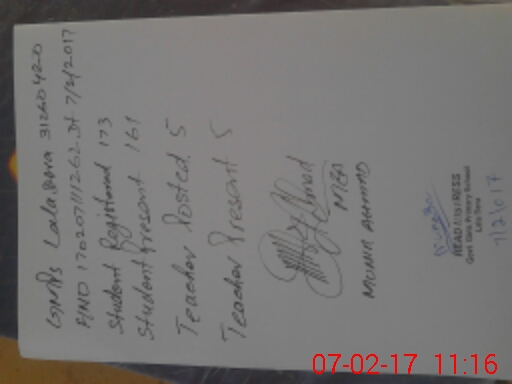 GMPS Lala Sara 31260420
FIND 170207111262 Dt 7/2/2017
Student Registered 173
Student Present 161
Teacher Posted 5
Teacher Present 5
Ahmad
MEA
MUNIR AHMAD
HEAD MISTRESS
Govt. Girls Primary School
Lala Sara
7/2/2017
07-02-17 11:16